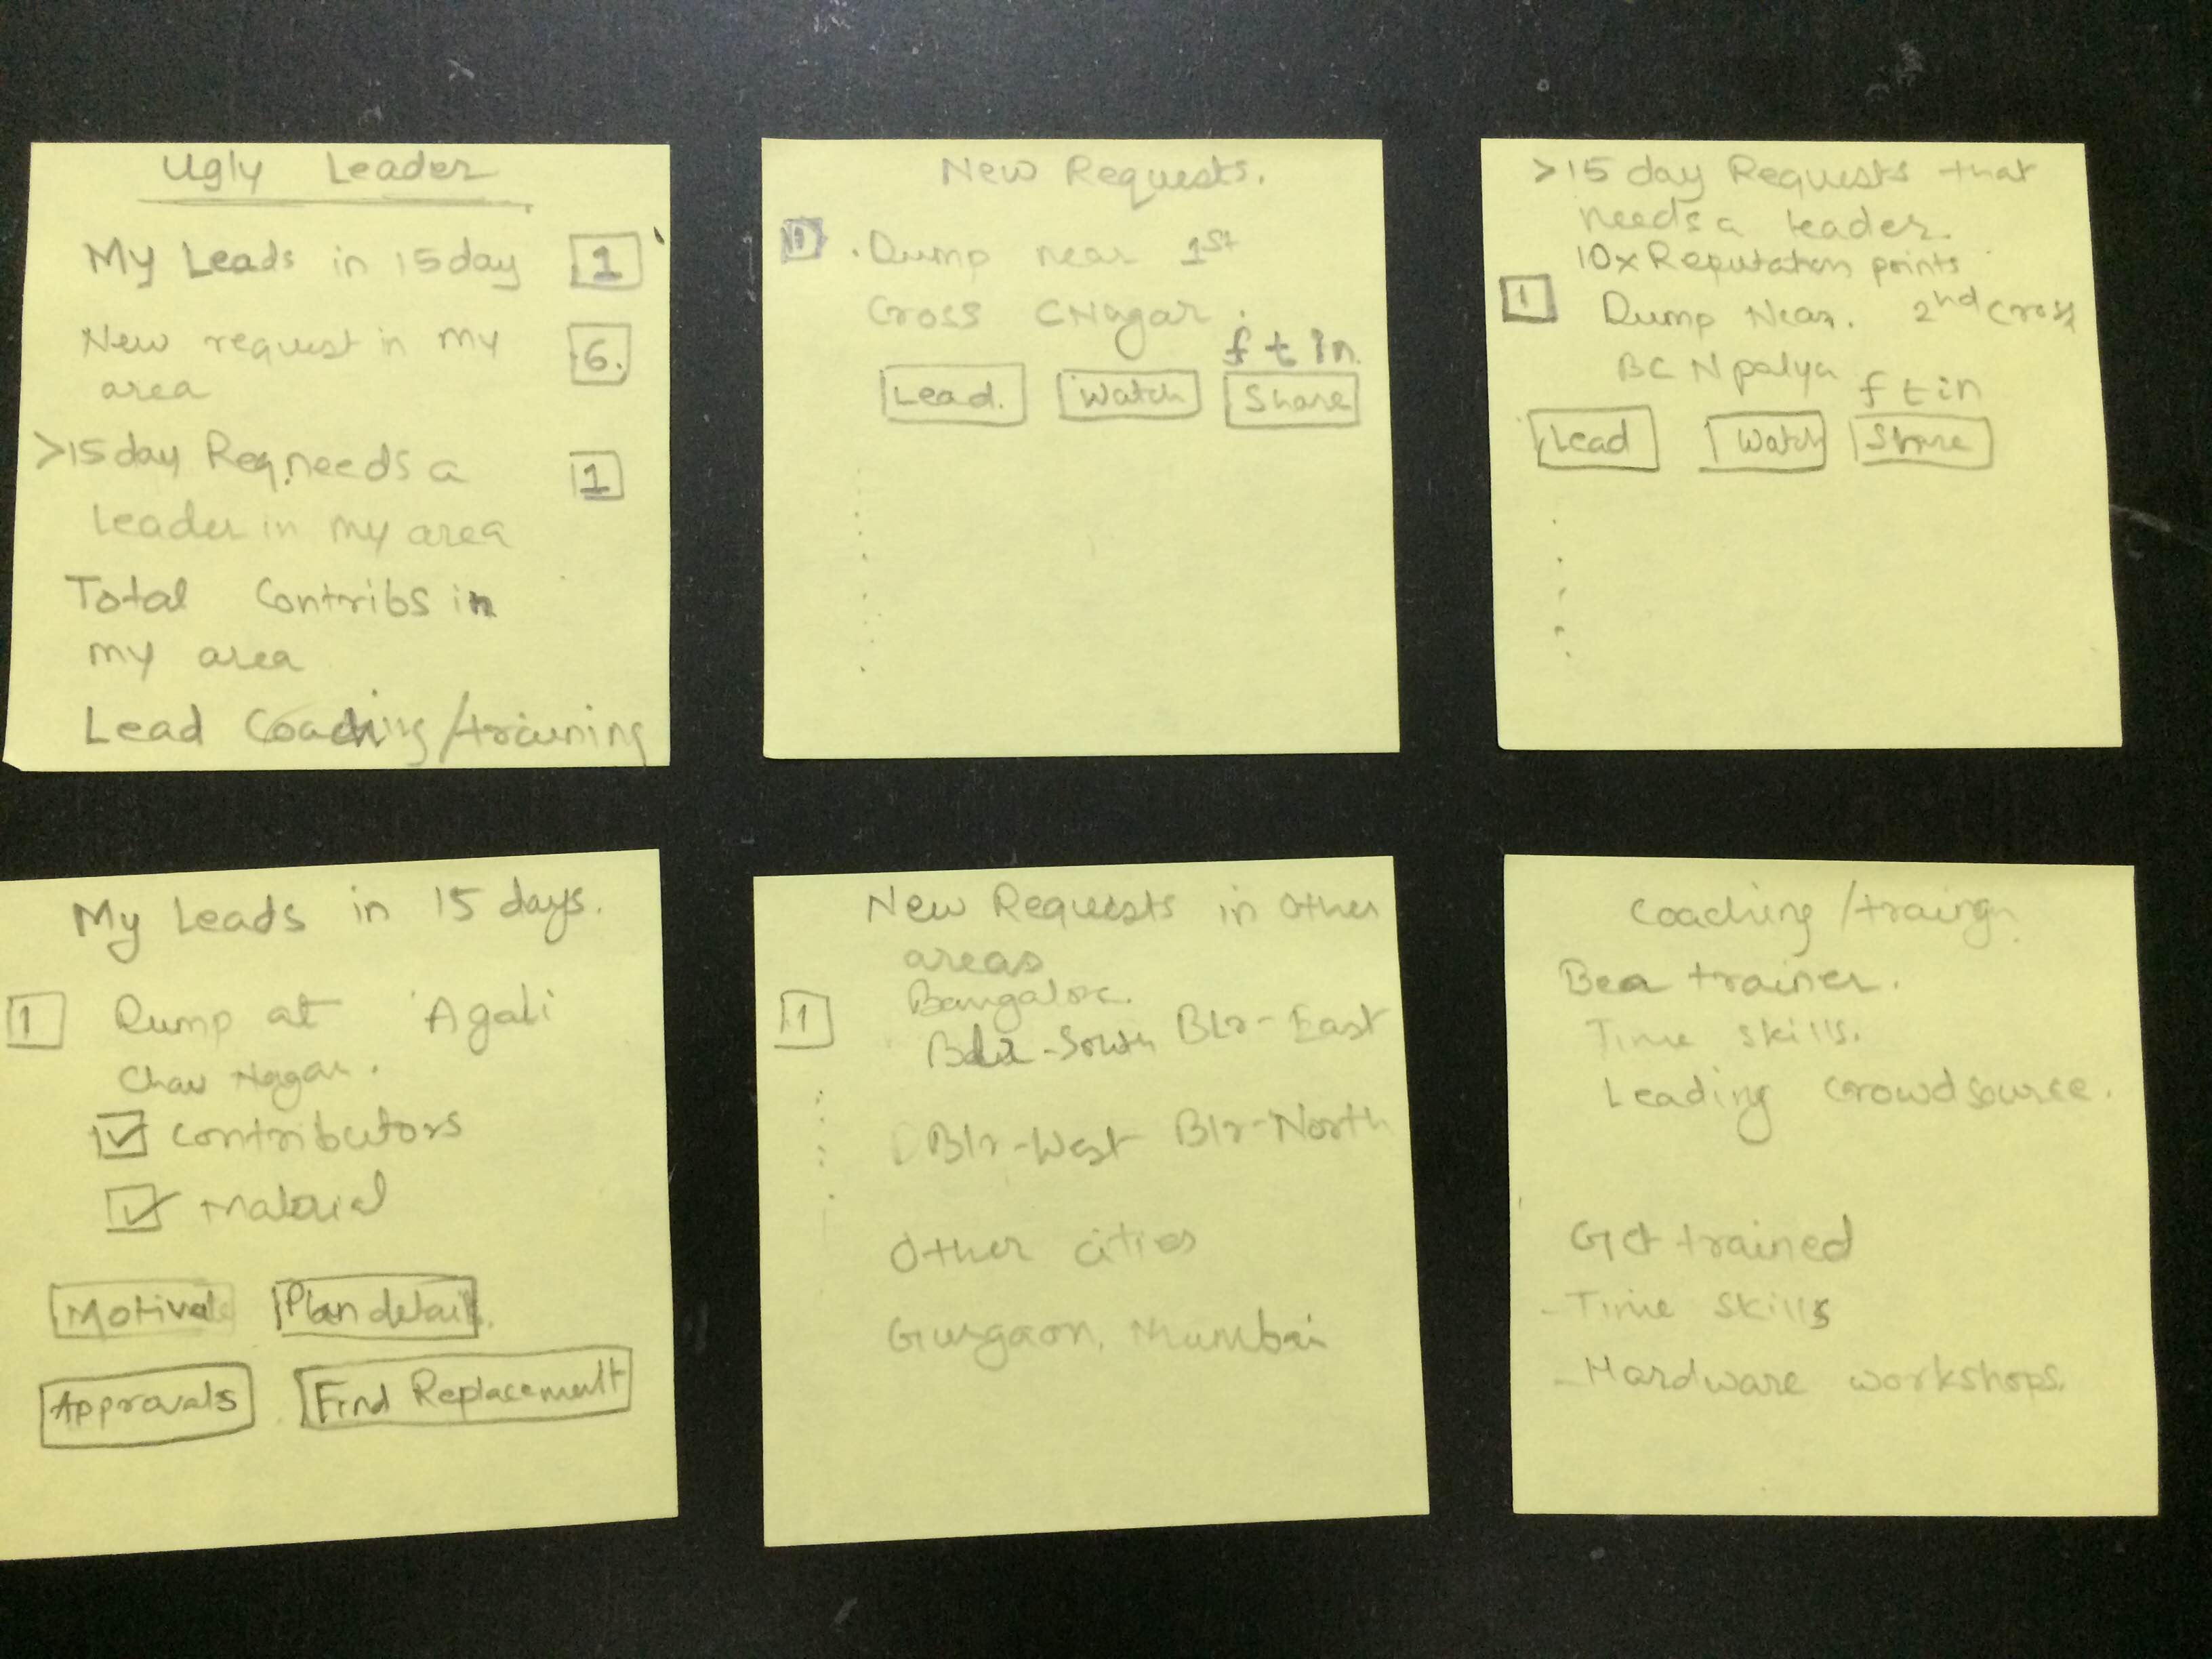 Ugly Leader
My Leads in 15 day 1
New request in my 6.
area
>15 day Req. needs a 1
Leader in my area
Total Contribs in
my area
Lead Coaching/training
New Requests.
1 . Dump near 1st
Cross CNagar.
f t in
Lead. Watch Share
>15 day Requests that
needs a leader.
10x Reputation points
1 Dump Near. 2nd Cross
BC N palya
f t in
Lead Watch Share
My Leads in 15 days.
1 Dump at Agali
Nagar.
Contributors
Material
Motivate Plan details.
Approvals Find Replacement
New Requests in Other
areas
Bangalore.
1 Blr-South Blr-East
Blr-West Blr-North
Other cities
Gurgaon, Mumbai
Coaching/traingn
Be a trainer.
Time skills.
Leading Crowdsource.
Get trained
- Time skills
- Hardware workshops.